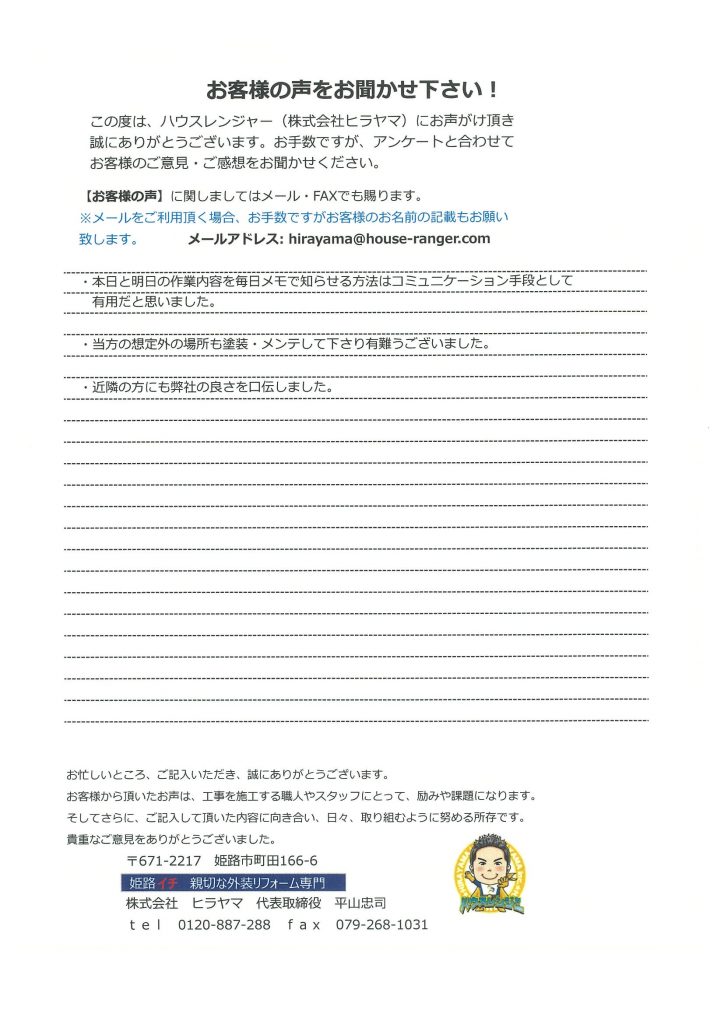 お客様の声をお聞かせ下さい！
この度は、ハウスレンジャー（株式会社ヒラヤマ）にお声がけ頂き
誠にありがとうございます。お手数ですが、アンケートと合わせて
お客様のご意見・ご感想をお聞かせください。
【お客様の声】に関しましてはメール・FAXでも賜ります。
※メールをご利用頂く場合、お手数ですがお客様のお名前の記載もお願い
致します。 メールアドレス: hirayama@house-ranger.com
・本日と明日の作業内容を毎日メモで知らせる方法はコミュニケーション手段として
有用だと思いました。
・当方の想定外の場所も塗装・メンテして下さり有難うございました。
・近隣の方にも弊社の良さを口伝しました。
お忙しいところ、ご記入いただき、誠にありがとうございます。
お客様から頂いたお声は、工事を施工する職人やスタッフにとって、励みや課題になります。
そしてさらに、ご記入して頂いた内容に向き合い、日々、取り組むように努める所存です。
貴重なご意見をありがとうございました。
〒671-2217 姫路市町田166-6
姫路イチ 親切な外装リフォーム専門
株式会社 ヒラヤマ 代表取締役 平山忠司
ｔｅｌ 0120-887-288 ｆａｘ 079-268-1031
ハウスレンジャー